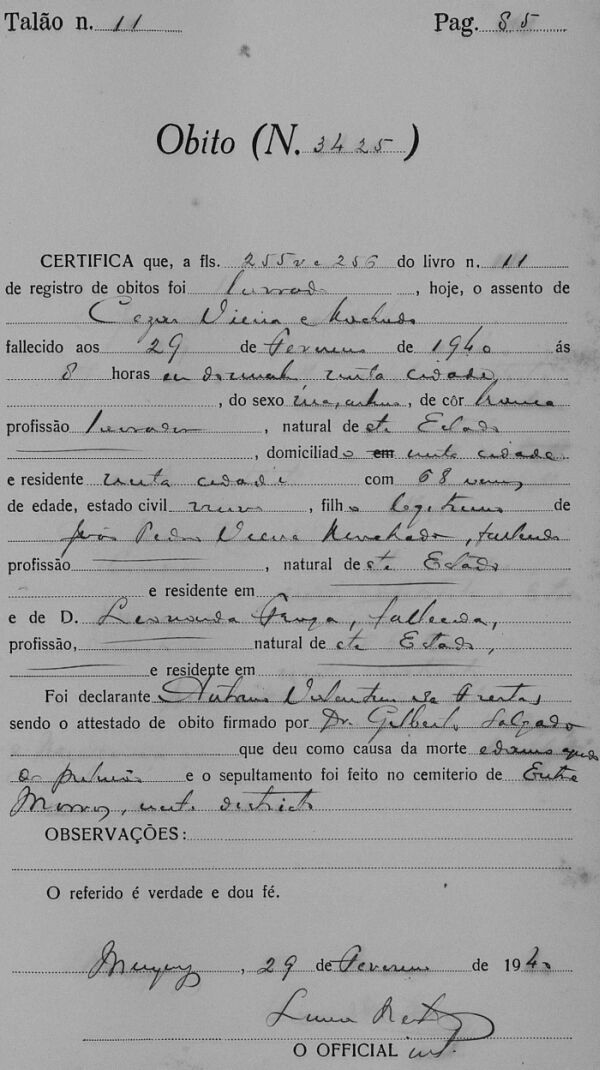 Talão n. 11 Pag. 85
Obito (N. 3425)
CERTIFICA que, a fls. 255v e 256 do livro n. 11
de registro de obitos foi lavrado, hoje, o assento de
Cezar Vieira Machado
fallecido aos 29 de Fevereiro de 1940 ás
8 horas em domicilio, nesta cidade,
, do sexo masculino, de côr branca
profissão lavrador, natural deste Estado
, domiciliado em nesta cidade
e residente nesta cidade com 68 annos
de edade, estado civil viuvo, filho legitimo de
João Pedro Vieira Machado, fallecido
profissão, natural deste Estado
e residente em
e de D. Leonarda, fallecida,
profissão, natural deste Estado,
e residente em
Foi declarante Valentim de Freitas,
sendo o attestado de obito firmado por Dr. Gilberto Salgado
que deu como causa da morte edema agudo
do pulmão e o sepultamento foi feito no cemiterio de Entre
Morros, neste districto
OBSERVAÇÕES:
O referido é verdade e dou fé.
, 29 de Fevereiro de 1940
O OFFICIAL int.